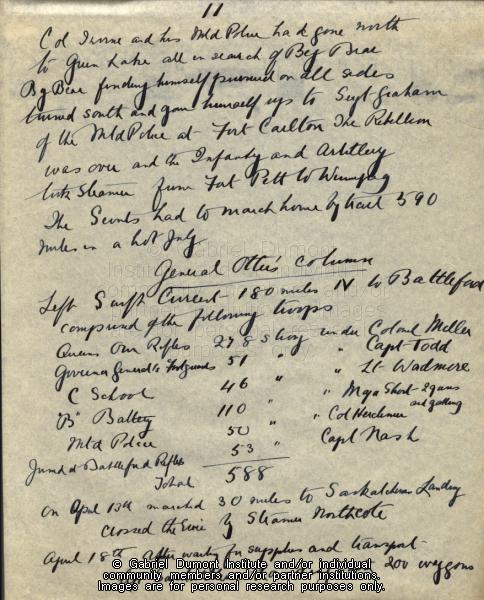 11
Col Irvine and his Mtd Police had gone north
to Green Lake all in search of Big Bear
Big Bear finding himself pursued on all sides
turned south and gave himself up to Supt Graham
of the Mtd Police at Fort Carlton The Rebellion
was over and the Infantry and Artillery
took Steamer from Fort Pitt to Winnipeg
The Scouts had to march home by trail 590
miles in a hot July
General Otter's column
Left Swift Current 180 miles N to Battleford
comprised of the following troops
Queens Own Rifles 278 strong under Colonel Miller
Governor General's Footguards 51 " " Capt Todd
C School 46 " " Lt Wadmore
"B" Battery 110 " " Major Short 2 guns and gatling
Mtd Police 50 " " Col Herchmer
Battleford Rifles 53 " Capt Nash
Total 588
on April 13th marched 30 miles to Saskatchewan Landing
crossed the River by Steamer Northcote
April 18th After waiting for supplies and transport
200 waggons
© Gabriel Dumont Institute and/or individual
community members and/or partner institutions.
Images are for personal research purposes only.